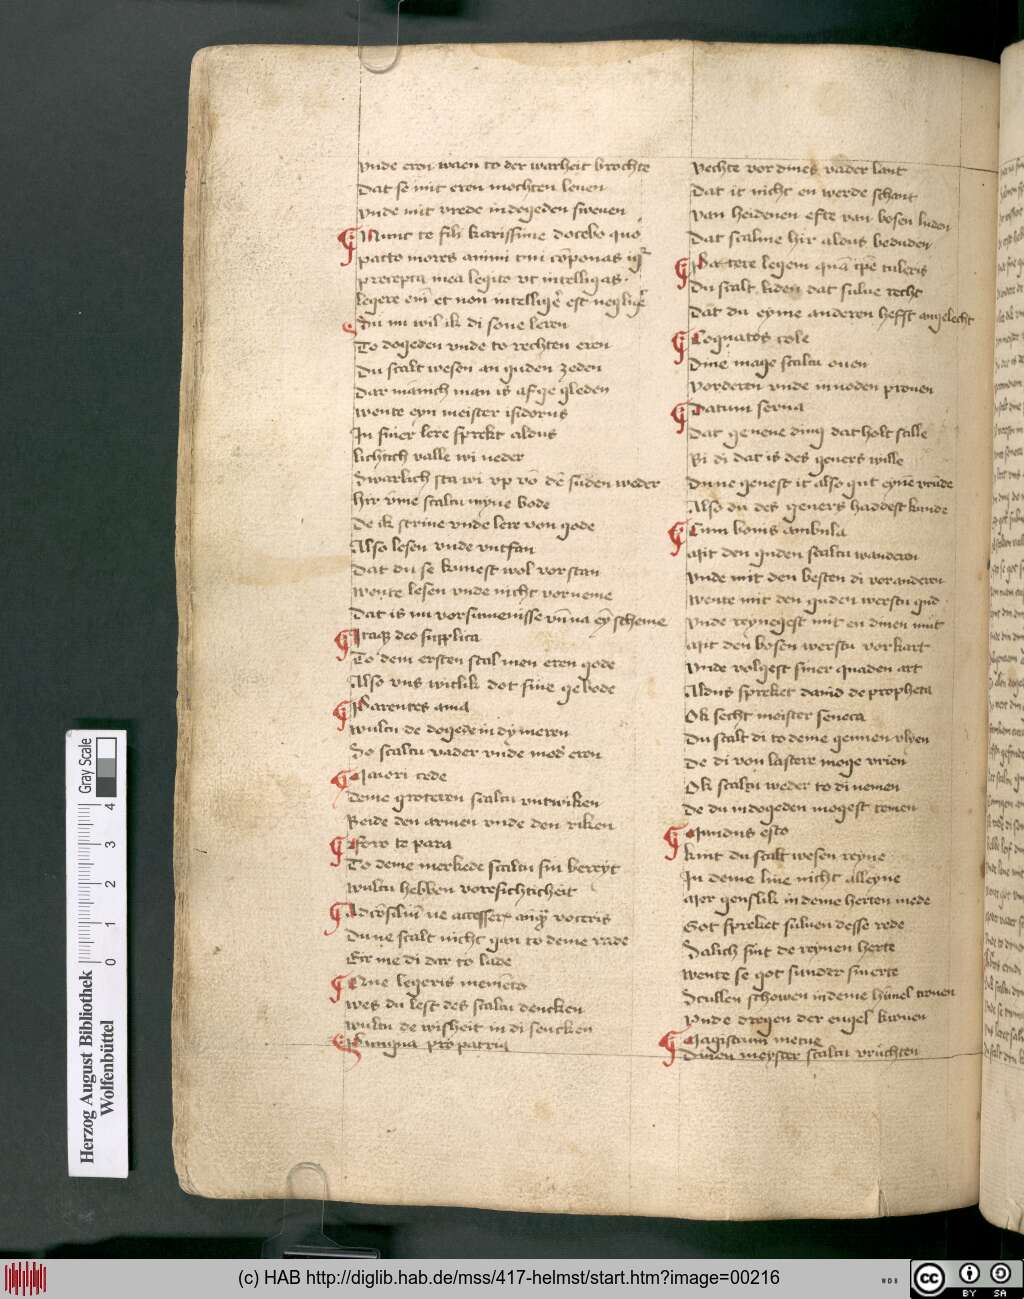 vnde eren waen to der warheit brochte
Dat se mit eren mochten leuen
vnde mit vrede in dogeden sweuen
Nunc te fili karissime docebo quo
pacto mores animi tui co̅ponas igr̅
precepta mea legito vt intelligas
legere em̅ et non intellige̅ est neglig̅e
Nu wil ik di sone leren
To dogeden vnde to rechten eren
Du scalt wesen an guden zeden
Dar manich man is af ge gleden
wente eyn meister isidorus
In siner lere sprekt aldus
lichtich valle wi neder
Swarlich sta wi vp vo̅ de̅ sunden weder
hir vme scaltu myne bode
De ik scriue vnde lere von gode
Also lesen vnde vntfan
Dat du se kunnest wol vorstan
wente lesen vnde nicht vorneme
Dat is nu vorsumenisse vn̅ na ey̅ scheme
Itaq̢ deo supplica
To dem ersten scal men eren gode
Also vns witlik dot sine gebode
Parentes ama
wultu de dogede in dy meren
So scaltu vader vnde moder eren
Maiori cede
deme groteren scaltu vntwiken
Beide den armen vnde den riken
Foro te para
To deme merkede scaltu sin bereyt
wultu hebben voresichticheit
Ad co̅siliu̅ ne accesser̅ anq̅ voceris
Du ne scalt nicht gan to deme rade
Er me di dar to lade
Que legeris meme̅to
wes du lest des scaltu dencken
wultu de wisheit in di sencken
Pungna pro patria
vechte vor dines vader lant
Dat it nicht en werde schant
van heidenen efte van bosen luden
Dat scaltu hir aldus beduden
Pa tere legem qua̅ ip̅e tuleris
Du scalt liden dat sulue recht
Dat du eyme anderen hefft angelecht
Cognatos cole
Dine mage scaltu ouen
vorderen vnde in noden prouen
Datum serua
Dat geuene ding dat holt stille
Bi di dat is des geuers wille
Du ne genest it also gut eyne vru̅de
Also du des geuers haddest kunde
Cum bonis ambula
Mit den guden scaltu wanderen
vnde mit den besten di voranderen
wente mit den guden werstu gud
vnde reynegest mit en dinen mut
Mit den bosen werstu vorkart
vnde volgest siner quaden art
Aldus spreket dauid de propheta
Ok secht meister seneca
Du scalt di to deme gennen vlyen
De di von lastere moge vrien
Ok scaltu weder to di nemen
De du in dogeden mogest temen
Mundus esto
kint du scalt wesen reyne
In deme liue nicht alleyne
Mer genslik in deme herten mede
Got spreket suluen desse rede
Salich sint de reynen herte
wente se got sunder smerte
Scullen schowen in deme hi̅mel tronen
vnde dregen der engel kronen
Magistrum metue
Dinen meyster scaltu vruchten
Gray Scale
0 1 2 3 4
Herzog August Bibliothek
Wolfenbüttel
(c) HAB http://diglib.hab.de/mss/417-helmst/start.htm?image=00216
WDB
cc BY SA